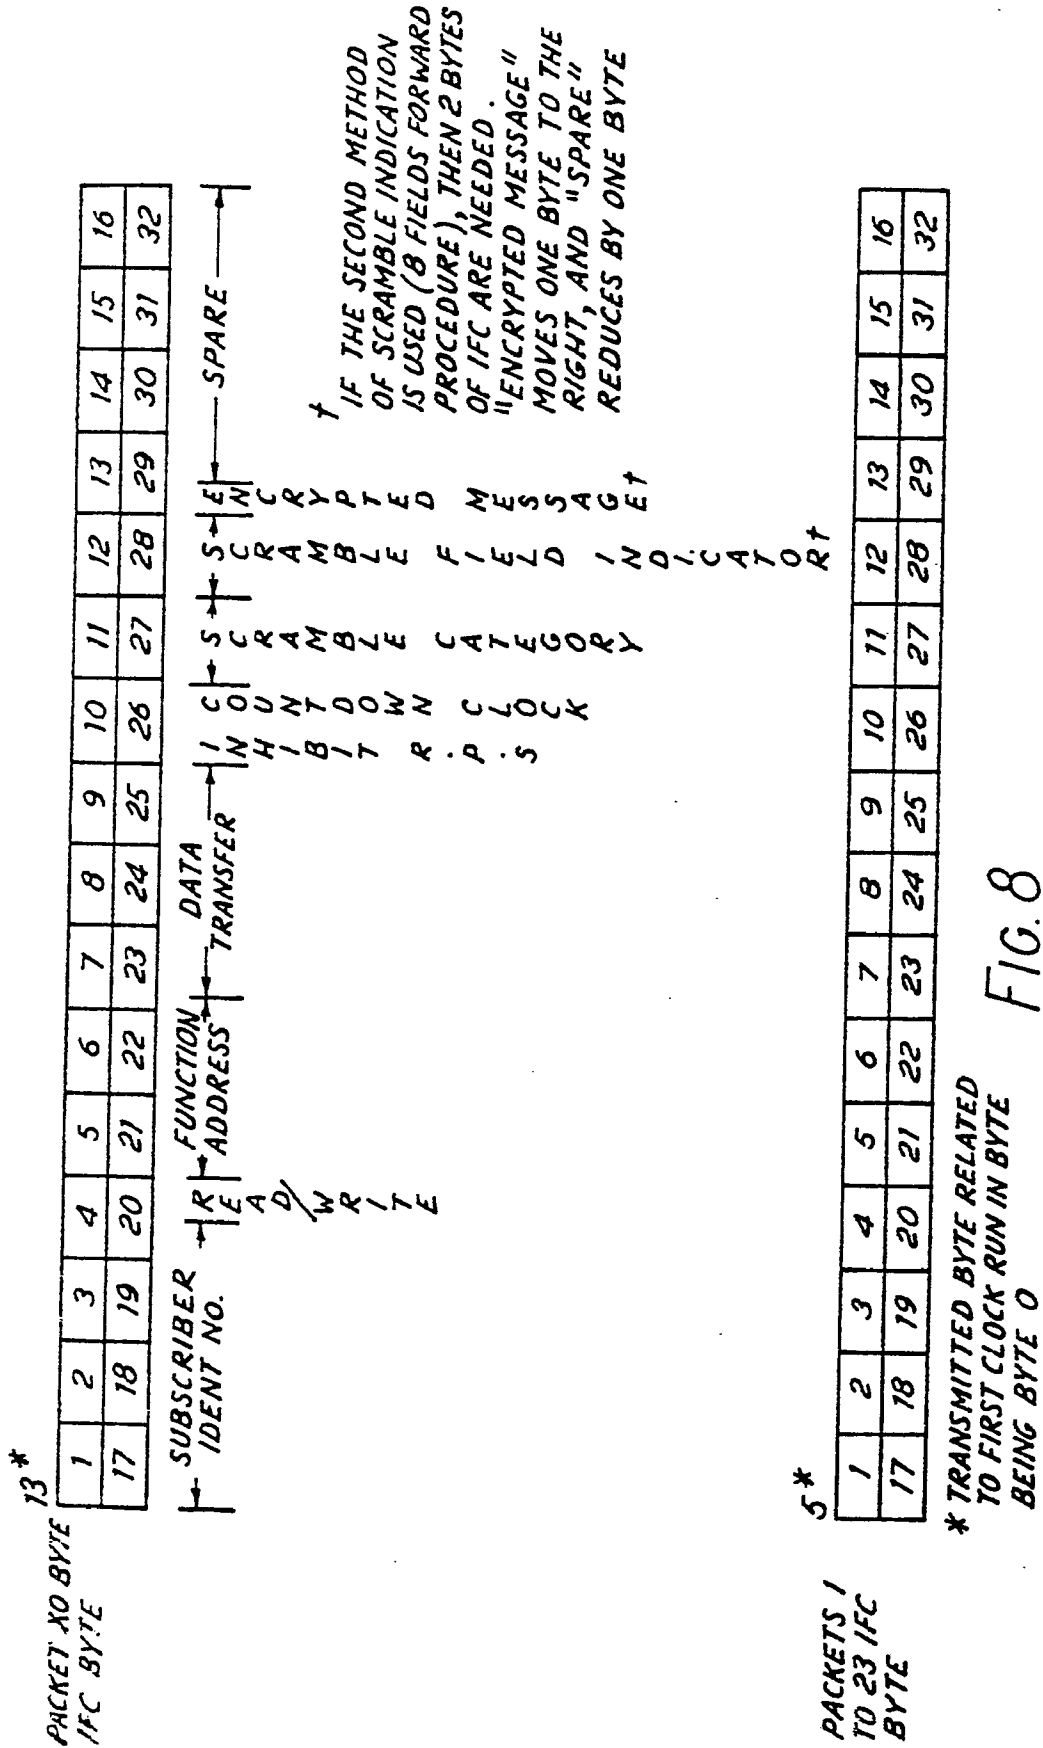 PACKET XO BYTE
IFC BYTE
13*
1 2 3 4 5 6 7 8 9 10 11 12 13 14 15 16
17 18 19 20 21 22 23 24 25 26 27 28 29 30 31 32
SUBSCRIBER
IDENT NO.
READ/WRITE
FUNCTION
ADDRESS
DATA
TRANSFER
INHIBIT R.P.S
COUNTDOWN CLOCK
SCRAMBLE CATEGORY
SCRAMBLE FIELD INDICATOR†
ENCRYPTED MESSAGE†
SPARE
† IF THE SECOND METHOD
OF SCRAMBLE INDICATION
IS USED (8 FIELDS FORWARD
PROCEDURE), THEN 2 BYTES
OF IFC ARE NEEDED.
"ENCRYPTED MESSAGE"
MOVES ONE BYTE TO THE
RIGHT, AND "SPARE"
REDUCES BY ONE BYTE
PACKETS 1
TO 23 IFC
BYTE
5*
1 2 3 4 5 6 7 8 9 10 11 12 13 14 15 16
17 18 19 20 21 22 23 24 25 26 27 28 29 30 31 32
* TRANSMITTED BYTE RELATED
TO FIRST CLOCK RUN IN BYTE
BEING BYTE 0
FIG. 8